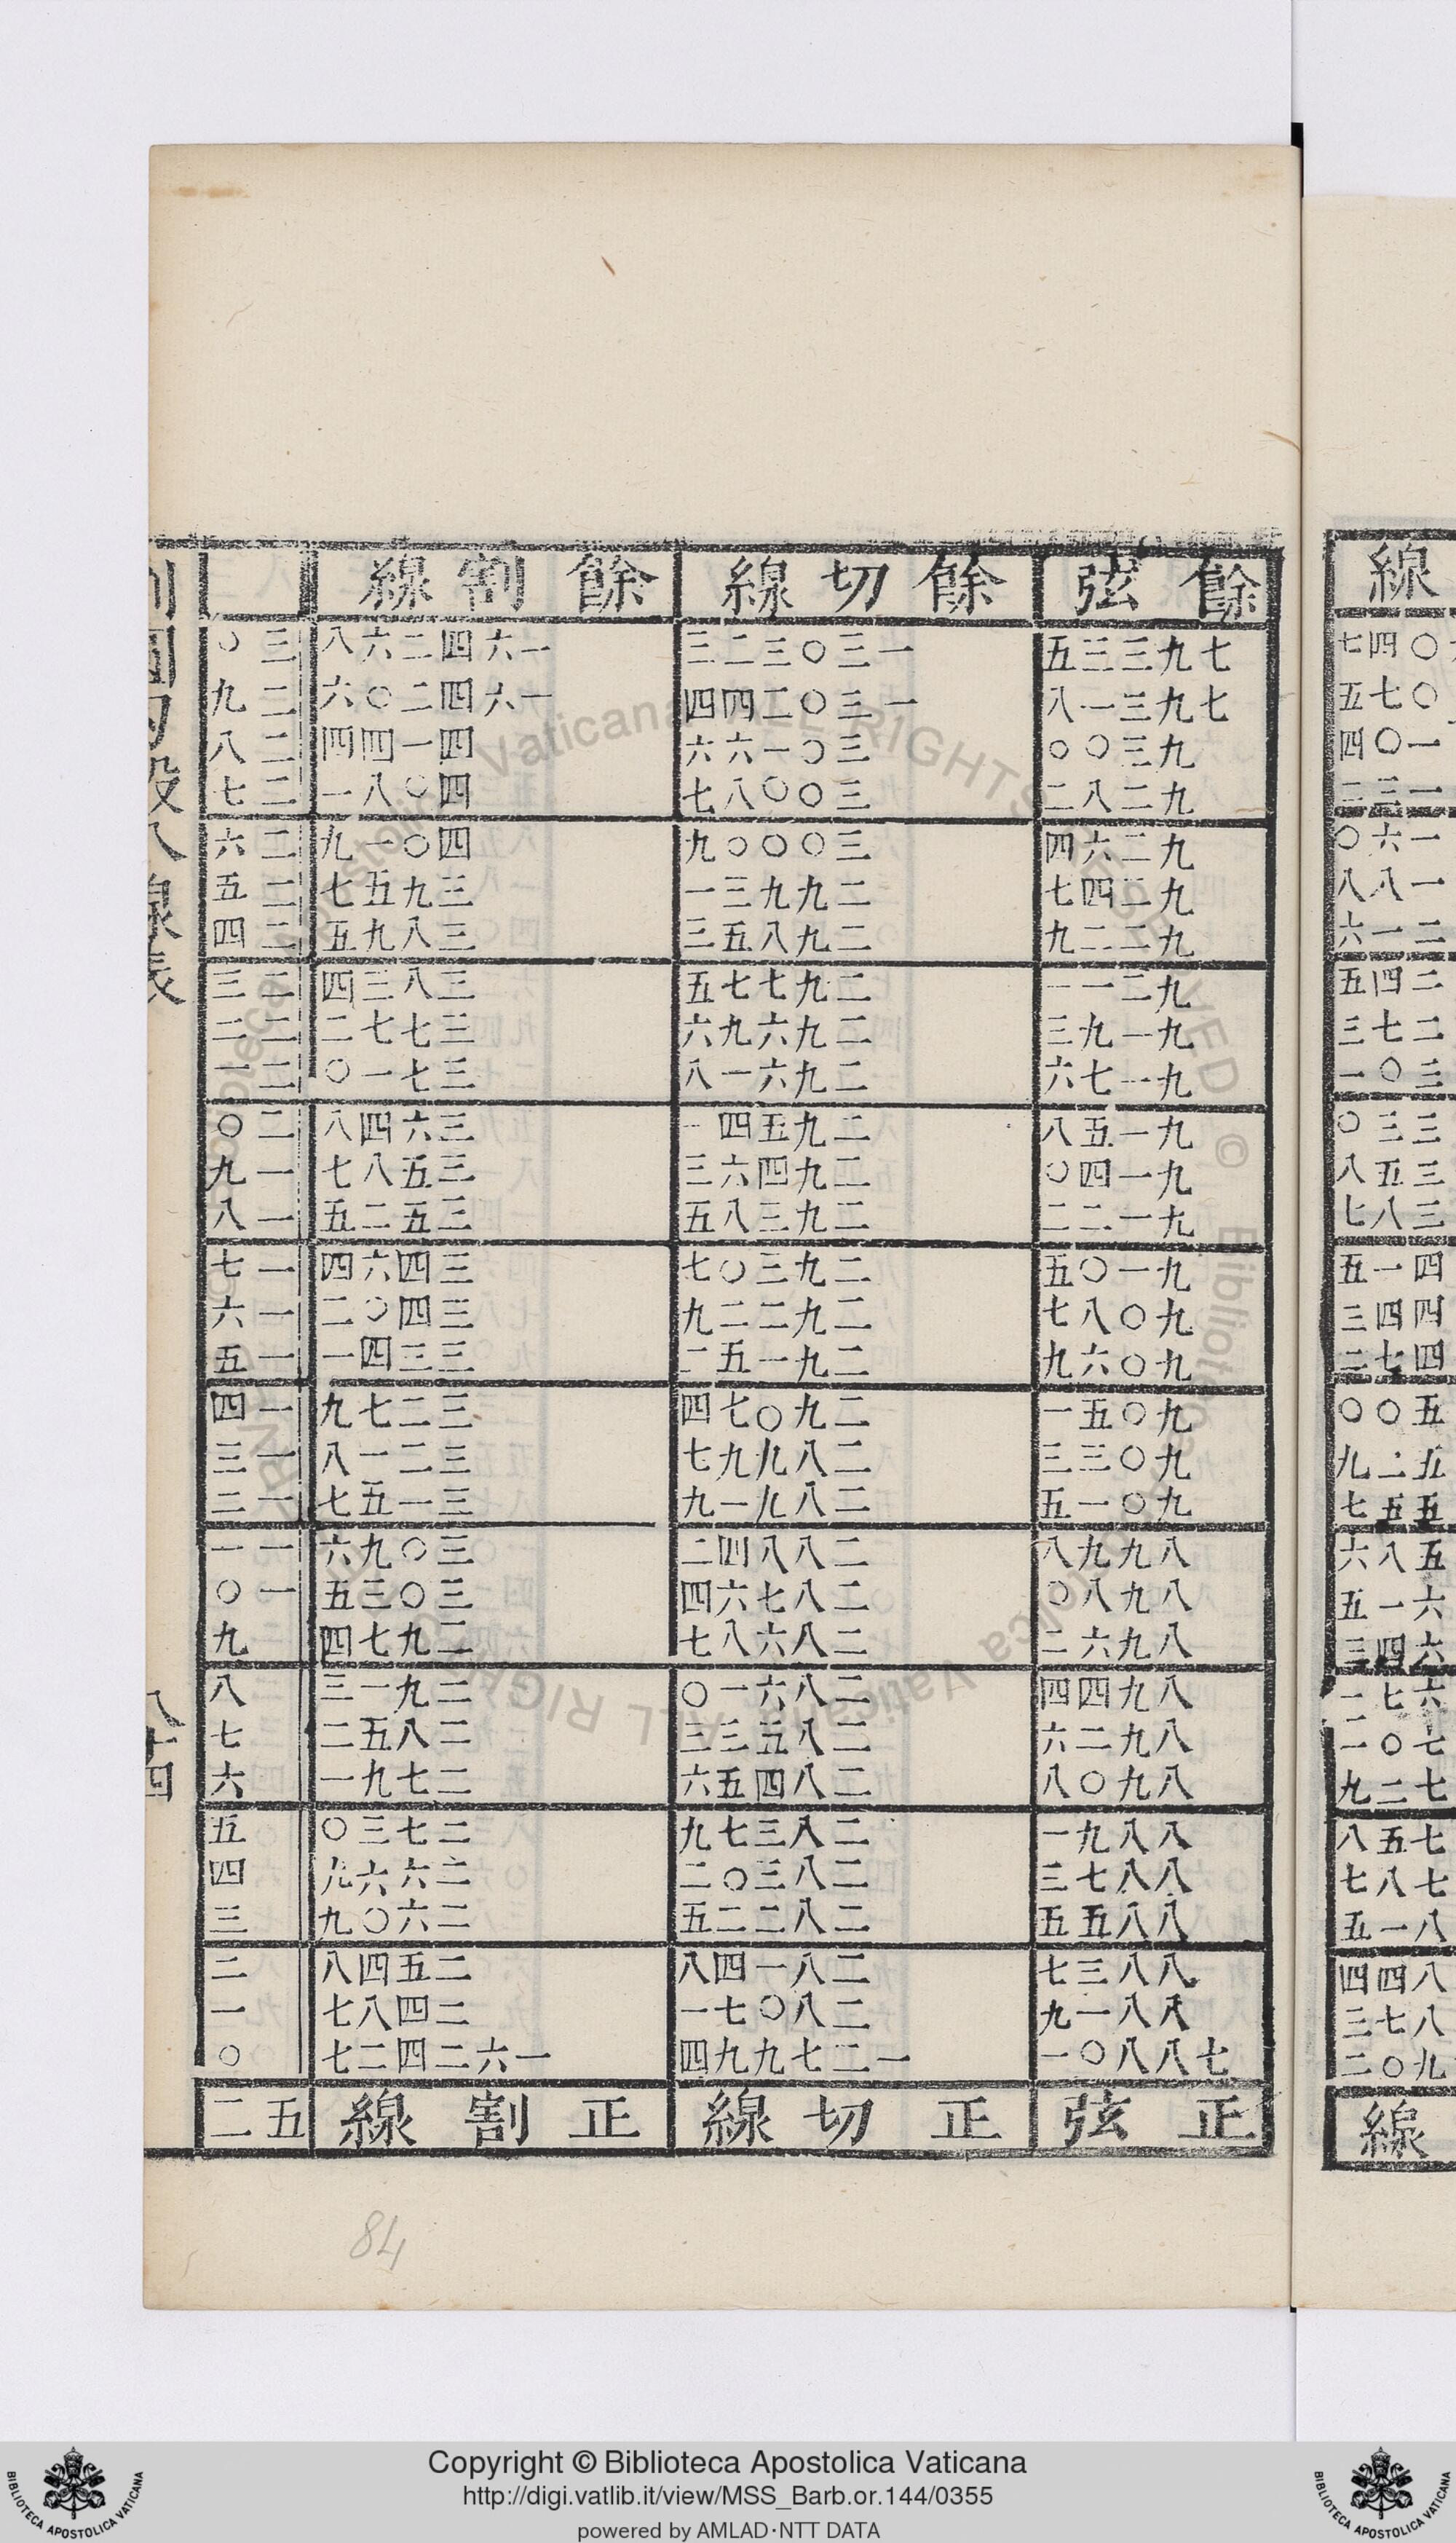 線
〇四七
〇七五
一〇四
一三二
一六〇
一八八
二一六
二四五
二七三
三〇一
三三〇
三五八
三八七
四一五
四四三
四七二
五〇〇
五二九
五五七
五八六
六一五
六四三
六七二
七〇一
七二九
七五八
七八七
八一五
八四四
八七三
九〇二
線
餘弦 餘切線 餘割線
七九三三五 一三〇三二三 一六四二六八 三〇
七九三一八 一三〇二四四 一六四二〇六 二九
九三〇〇 三〇一六六 四一四四 二八
九二八二 三〇〇八七 四〇八一 二七
九二六四 三〇〇〇九 四〇一九 二六
九二四七 二九九三一 三九五七 二五
九二二九 二九八五三 三八九五 二四
九二一一 二九七七五 三八三四 二三
九一九三 二九六九六 三七七二 二二
九一七六 二九六一八 三七一〇 二一
九一五八 二九五四一 三六四八 二〇
九一四〇 二九四六三 三五八七 一九
九一二二 二九三八五 三五二五 一八
九一〇五 二九三〇七 三四六四 一七
九〇八七 二九二二九 三四〇二 一六
九〇六九 二九一五二 三三四一 一五
九〇五一 二九〇七四 三二七九 一四
九〇三三 二八九九七 三二一八 一三
九〇一五 二八九一九 三一五七 一二
八九九八 二八八四二 三〇九六 一一
八九八〇 二八七六四 三〇三五 一〇
八九六二 二八六八七 二九七四 九
八九四四 二八六一〇 二九一三 八
八九二六 二八五三三 二八五二 七
八九〇八 二八四五六 二七九一 六
八八九一 二八三七九 二七三〇 五
八八七三 二八三〇二 二六六九 四
八八五五 二八二二五 二六〇九 三
八八三七 二八一四八 二五四八 二
八八一九 二八〇七一 二四八七 一
七八八〇一 一二七九九四 一六二四二七 〇
正弦 正切線 正割線 五二
割圓勾股八線表
八十四
84
Copyright © Biblioteca Apostolica Vaticana
http://digi.vatlib.it/view/MSS_Barb.or.144/0355
powered by AMLAD·NTT DATA
BIBLIOTECA APOSTOLICA VATICANA
BIBLIOTECA APOSTOLICA VATICANA